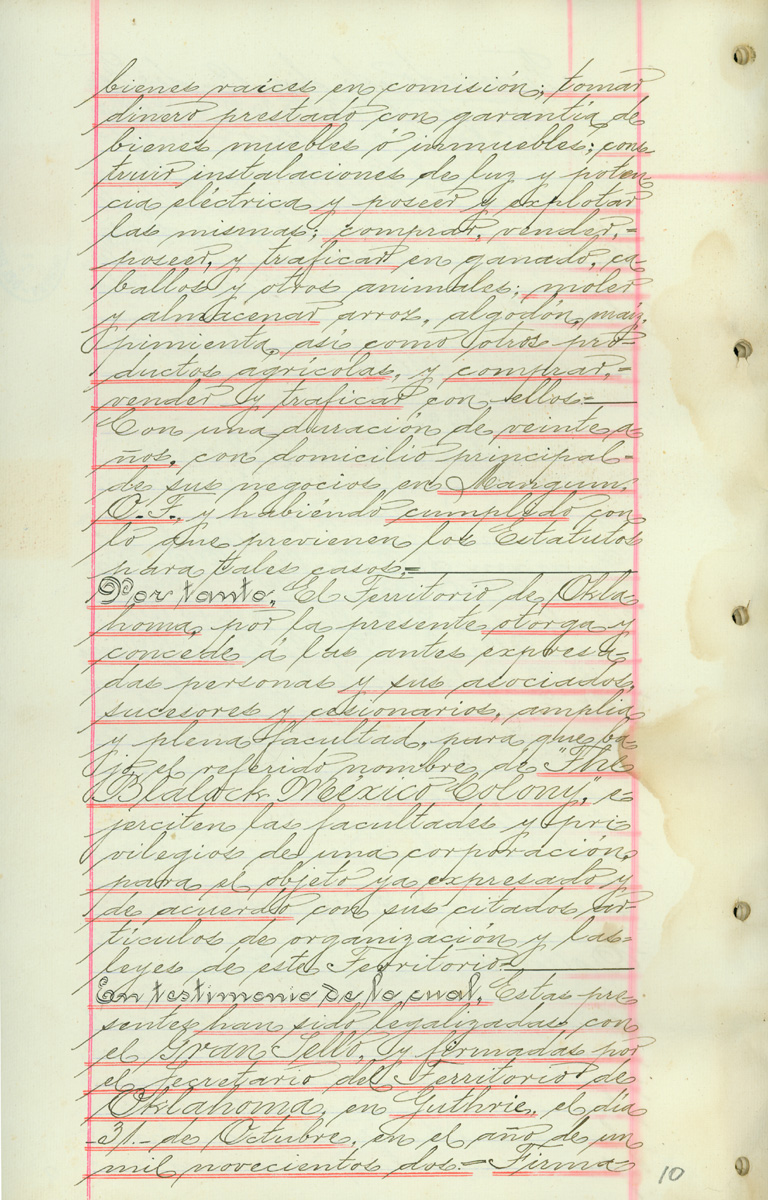 bienes raíces en comisión; tomar
dinero prestado con garantía de
bienes muebles ó inmuebles; cons-
truir instalaciones de luz y poten
cia eléctrica y poseer y explotar
las mismas; comprar, vender,=
poseer, y traficar en ganado, ca
ballos y otros animales; moler
y almacenar arroz, algodón, maíz,
pimienta, así como otros pro-
ductos agrícolas, y comprar,=
vender y traficar con ellos.=
Con una duración de veinte a-
ños, con domicilio principal=
de sus negocios en Mangum,
O. T., y habiéndo cumplido con
lo que previenen los Estatutos
para tales casos.=
Por tanto, El Territorio de Okla
homa, por la presente otorga y
concede á las antes expresa-
das personas y sus asociados,
sucesores y cesionarios, amplia
y plena facultad, para que ba-
jo el referido nombre de "The
Blalock México Colony," e-
jerciten las facultades y pri-
vilegios de una corporación,
para el objeto ya expresado y
de acuerdo con sus citados ar
tículos de organización y las=
leyes de este Territorio.=
En testimonio de lo cual, Estas pre
sentes han sido legalizadas con
el Gran Sello, y firmadas por
el Secretario del Territorio de
Oklahoma, en Guthrie, el día
-31- de Octubre, en el año de un
mil novecientos dos.= Firma-
10